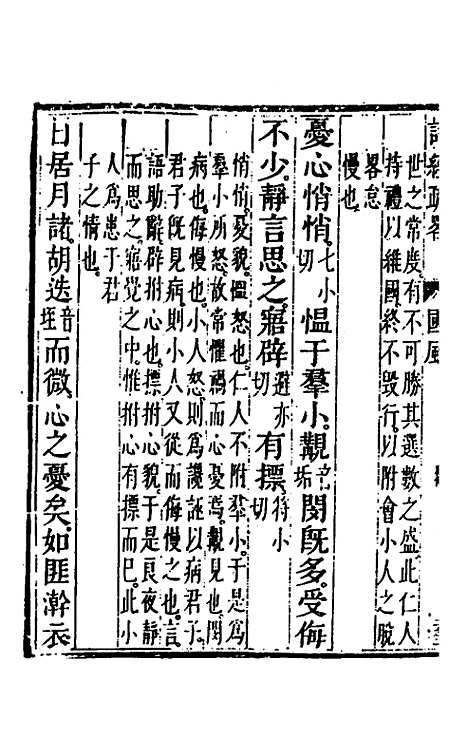 詩經疏畧 國風
世之常度有不可勝其選數之盛此仁人
持禮以維國終不毀行以附會小人之脫
畧怠
慢也
憂心悄悄七小切慍于羣小覯古垢閔旣多受侮
不少靜言思之寤辟避亦切有摽符小切
悄悄憂貌慍怒也仁人不附羣小于是爲
羣小所怒故常懼禍而心憂焉覯見也閔
病也侮慢也小人怒則爲讒誣以病君子
君子旣見病則小人又從而侮慢之也言
語助辭辟拊心也摽拊心貌于是良夜靜
而思之寤覺之中惟拊心有摽而已此小
人爲患于君
子之情也
日居月諸胡迭音垤而微心之憂矣如匪澣衣